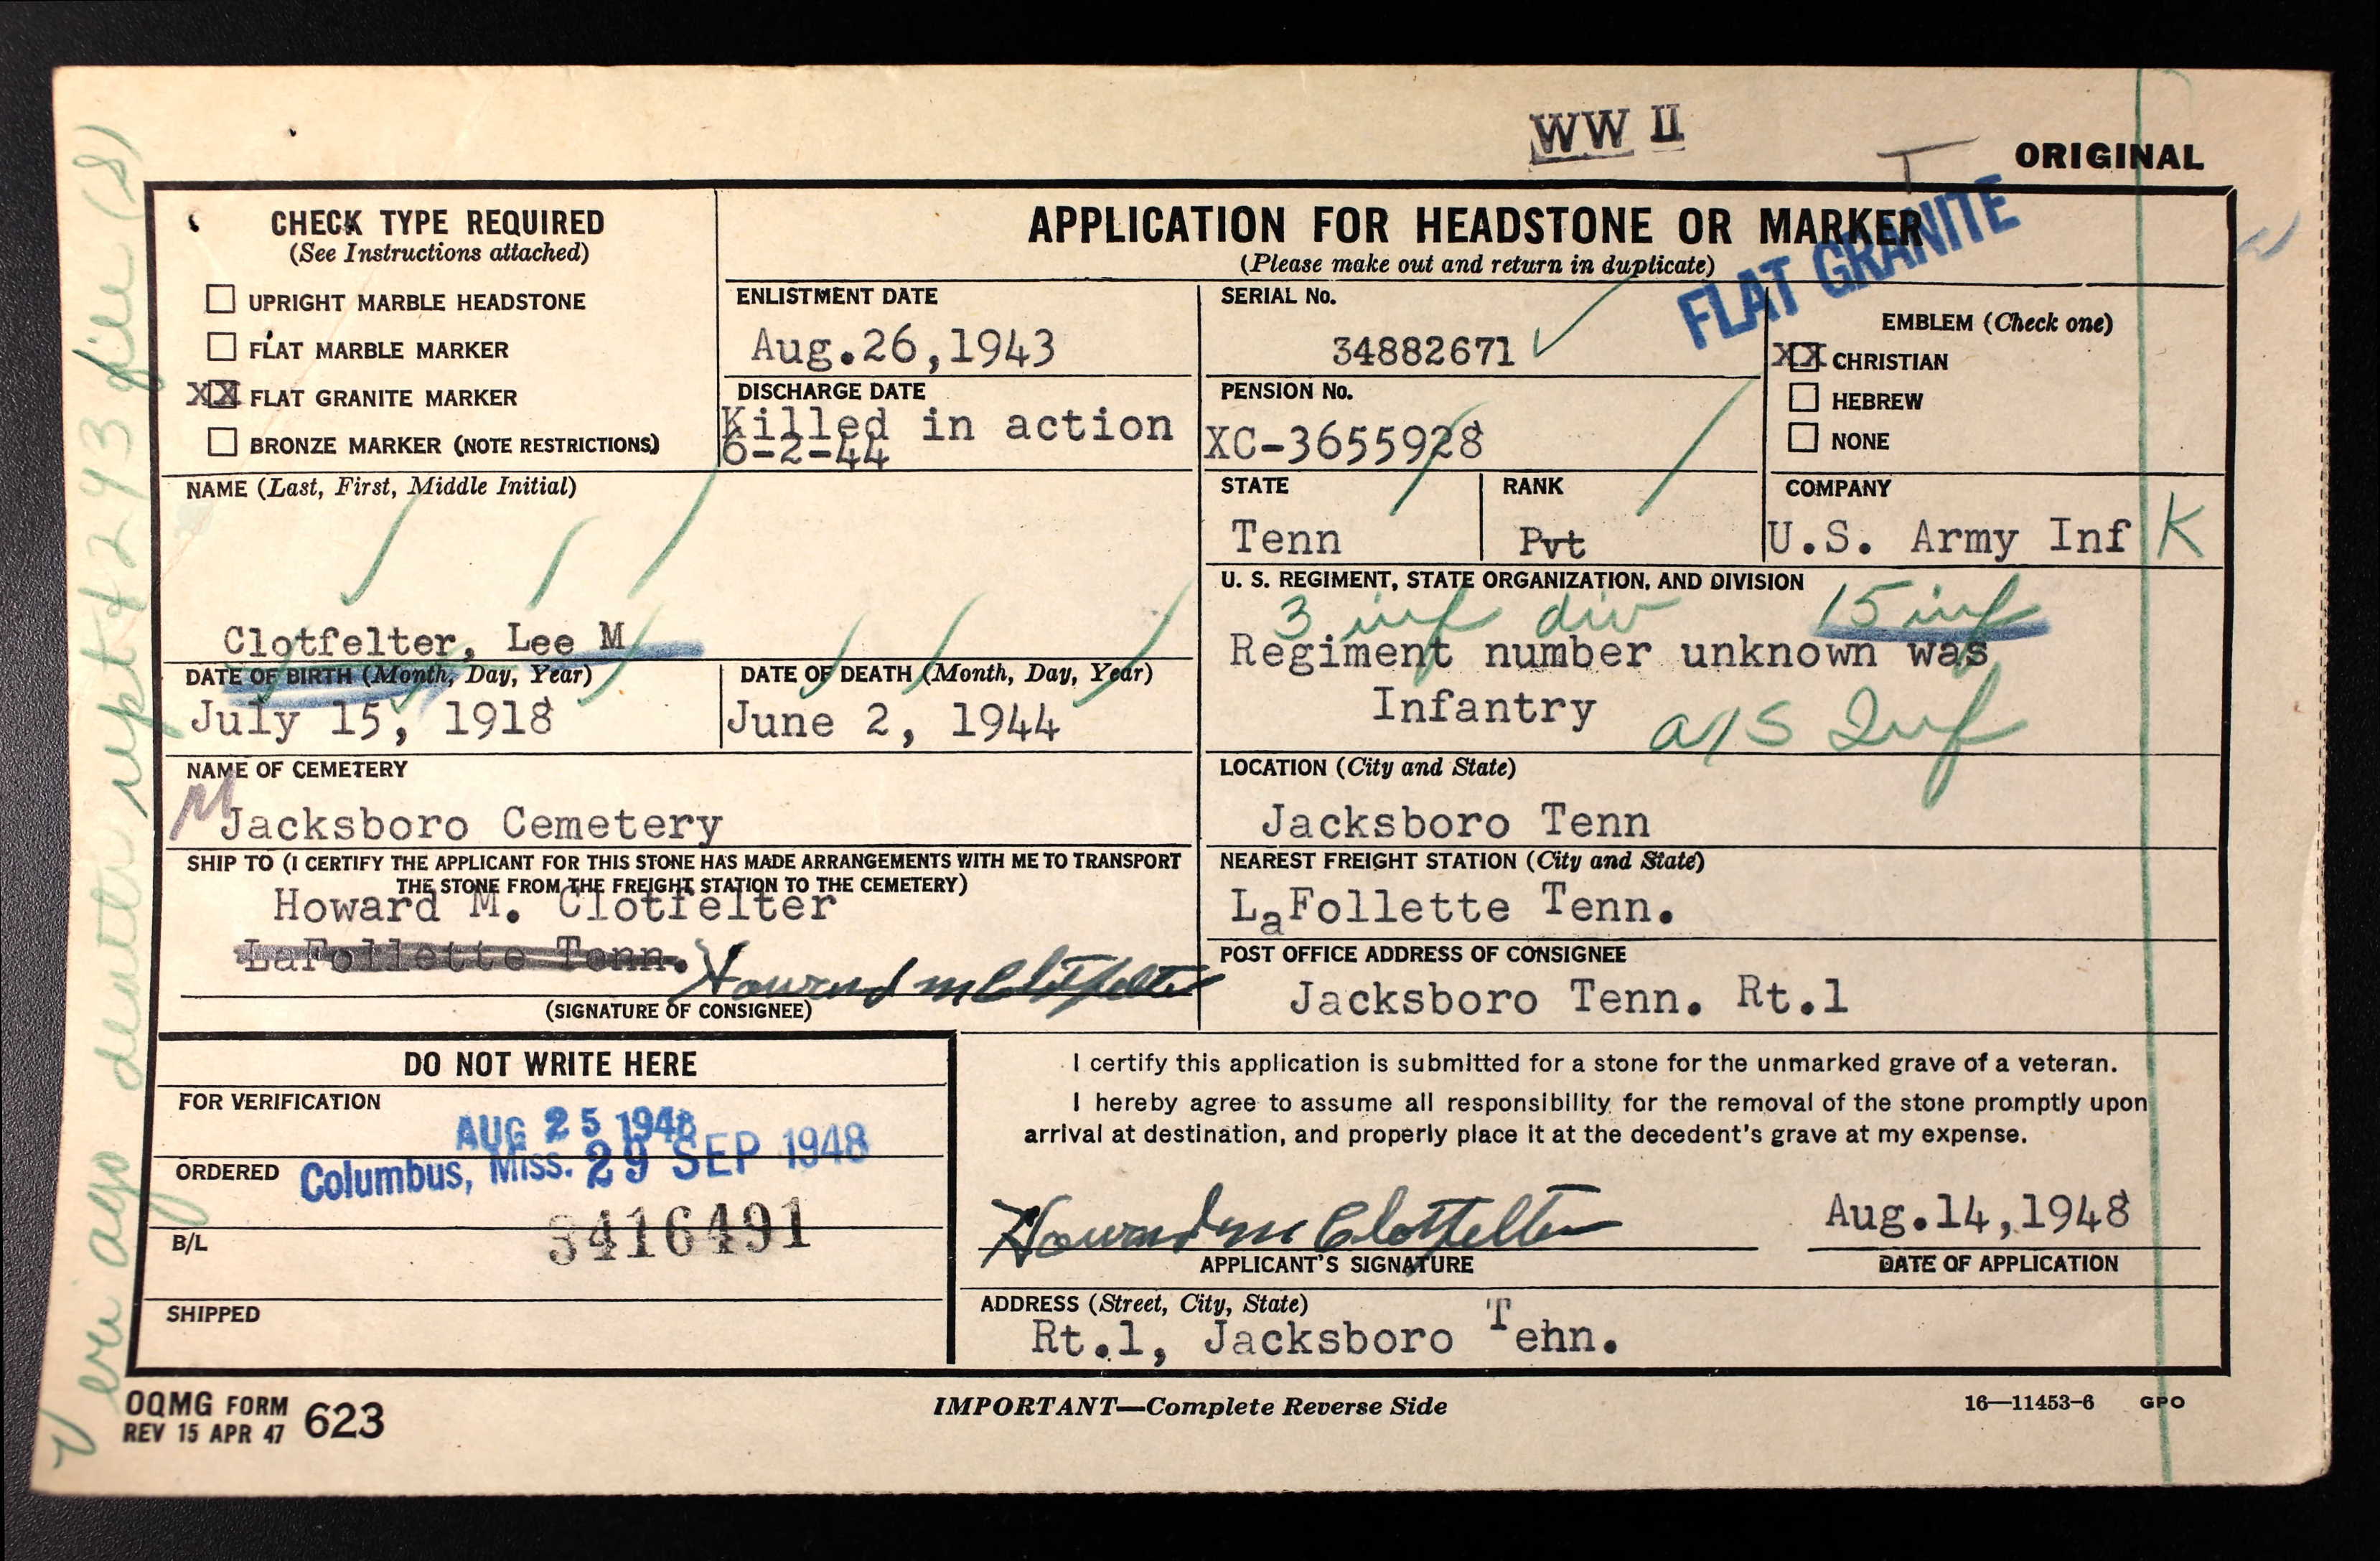 WW II
ORIGINAL
T
FLAT GRANITE
CHECK TYPE REQUIRED
(See Instructions attached)
UPRIGHT MARBLE HEADSTONE
FLAT MARBLE MARKER
XX FLAT GRANITE MARKER
BRONZE MARKER (NOTE RESTRICTIONS)
APPLICATION FOR HEADSTONE OR MARKER
(Please make out and return in duplicate)
ENLISTMENT DATE
Aug.26,1943
DISCHARGE DATE
Killed in action
6-2-44
SERIAL No.
34882671
PENSION No.
XC-3655928
EMBLEM (Check one)
XX CHRISTIAN
HEBREW
NONE
NAME (Last, First, Middle Initial)
Clotfelter, Lee M
STATE
Tenn
RANK
Pvt
COMPANY
U.S. Army Inf K
U. S. REGIMENT, STATE ORGANIZATION, AND DIVISION
3 inf div 15 inf
Regiment number unknown was
Infantry a/s Inf
DATE OF BIRTH (Month, Day, Year)
July 15, 1918
DATE OF DEATH (Month, Day, Year)
June 2, 1944
NAME OF CEMETERY
Jacksboro Cemetery
LOCATION (City and State)
Jacksboro Tenn
SHIP TO (I CERTIFY THE APPLICANT FOR THIS STONE HAS MADE ARRANGEMENTS WITH ME TO TRANSPORT
THE STONE FROM THE FREIGHT STATION TO THE CEMETERY)
Howard M. Clotfelter
LaFollette Tenn.
Howard M Clotfelter
(SIGNATURE OF CONSIGNEE)
NEAREST FREIGHT STATION (City and State)
LaFollette Tenn.
POST OFFICE ADDRESS OF CONSIGNEE
Jacksboro Tenn. Rt.1
DO NOT WRITE HERE
FOR VERIFICATION
AUG 25 1948
ORDERED Columbus, Miss. 29 SEP 1948
B/L 3416491
SHIPPED
I certify this application is submitted for a stone for the unmarked grave of a veteran.
I hereby agree to assume all responsibility for the removal of the stone promptly upon
arrival at destination, and properly place it at the decedent's grave at my expense.
Howard M Clotfelter
APPLICANT'S SIGNATURE
Aug.14,1948
DATE OF APPLICATION
ADDRESS (Street, City, State)
Rt.1, Jacksboro Tehn.
OQMG FORM 623
REV 15 APR 47
IMPORTANT—Complete Reverse Side
16—11453-6 GPO
ago death rept 293 file (S)